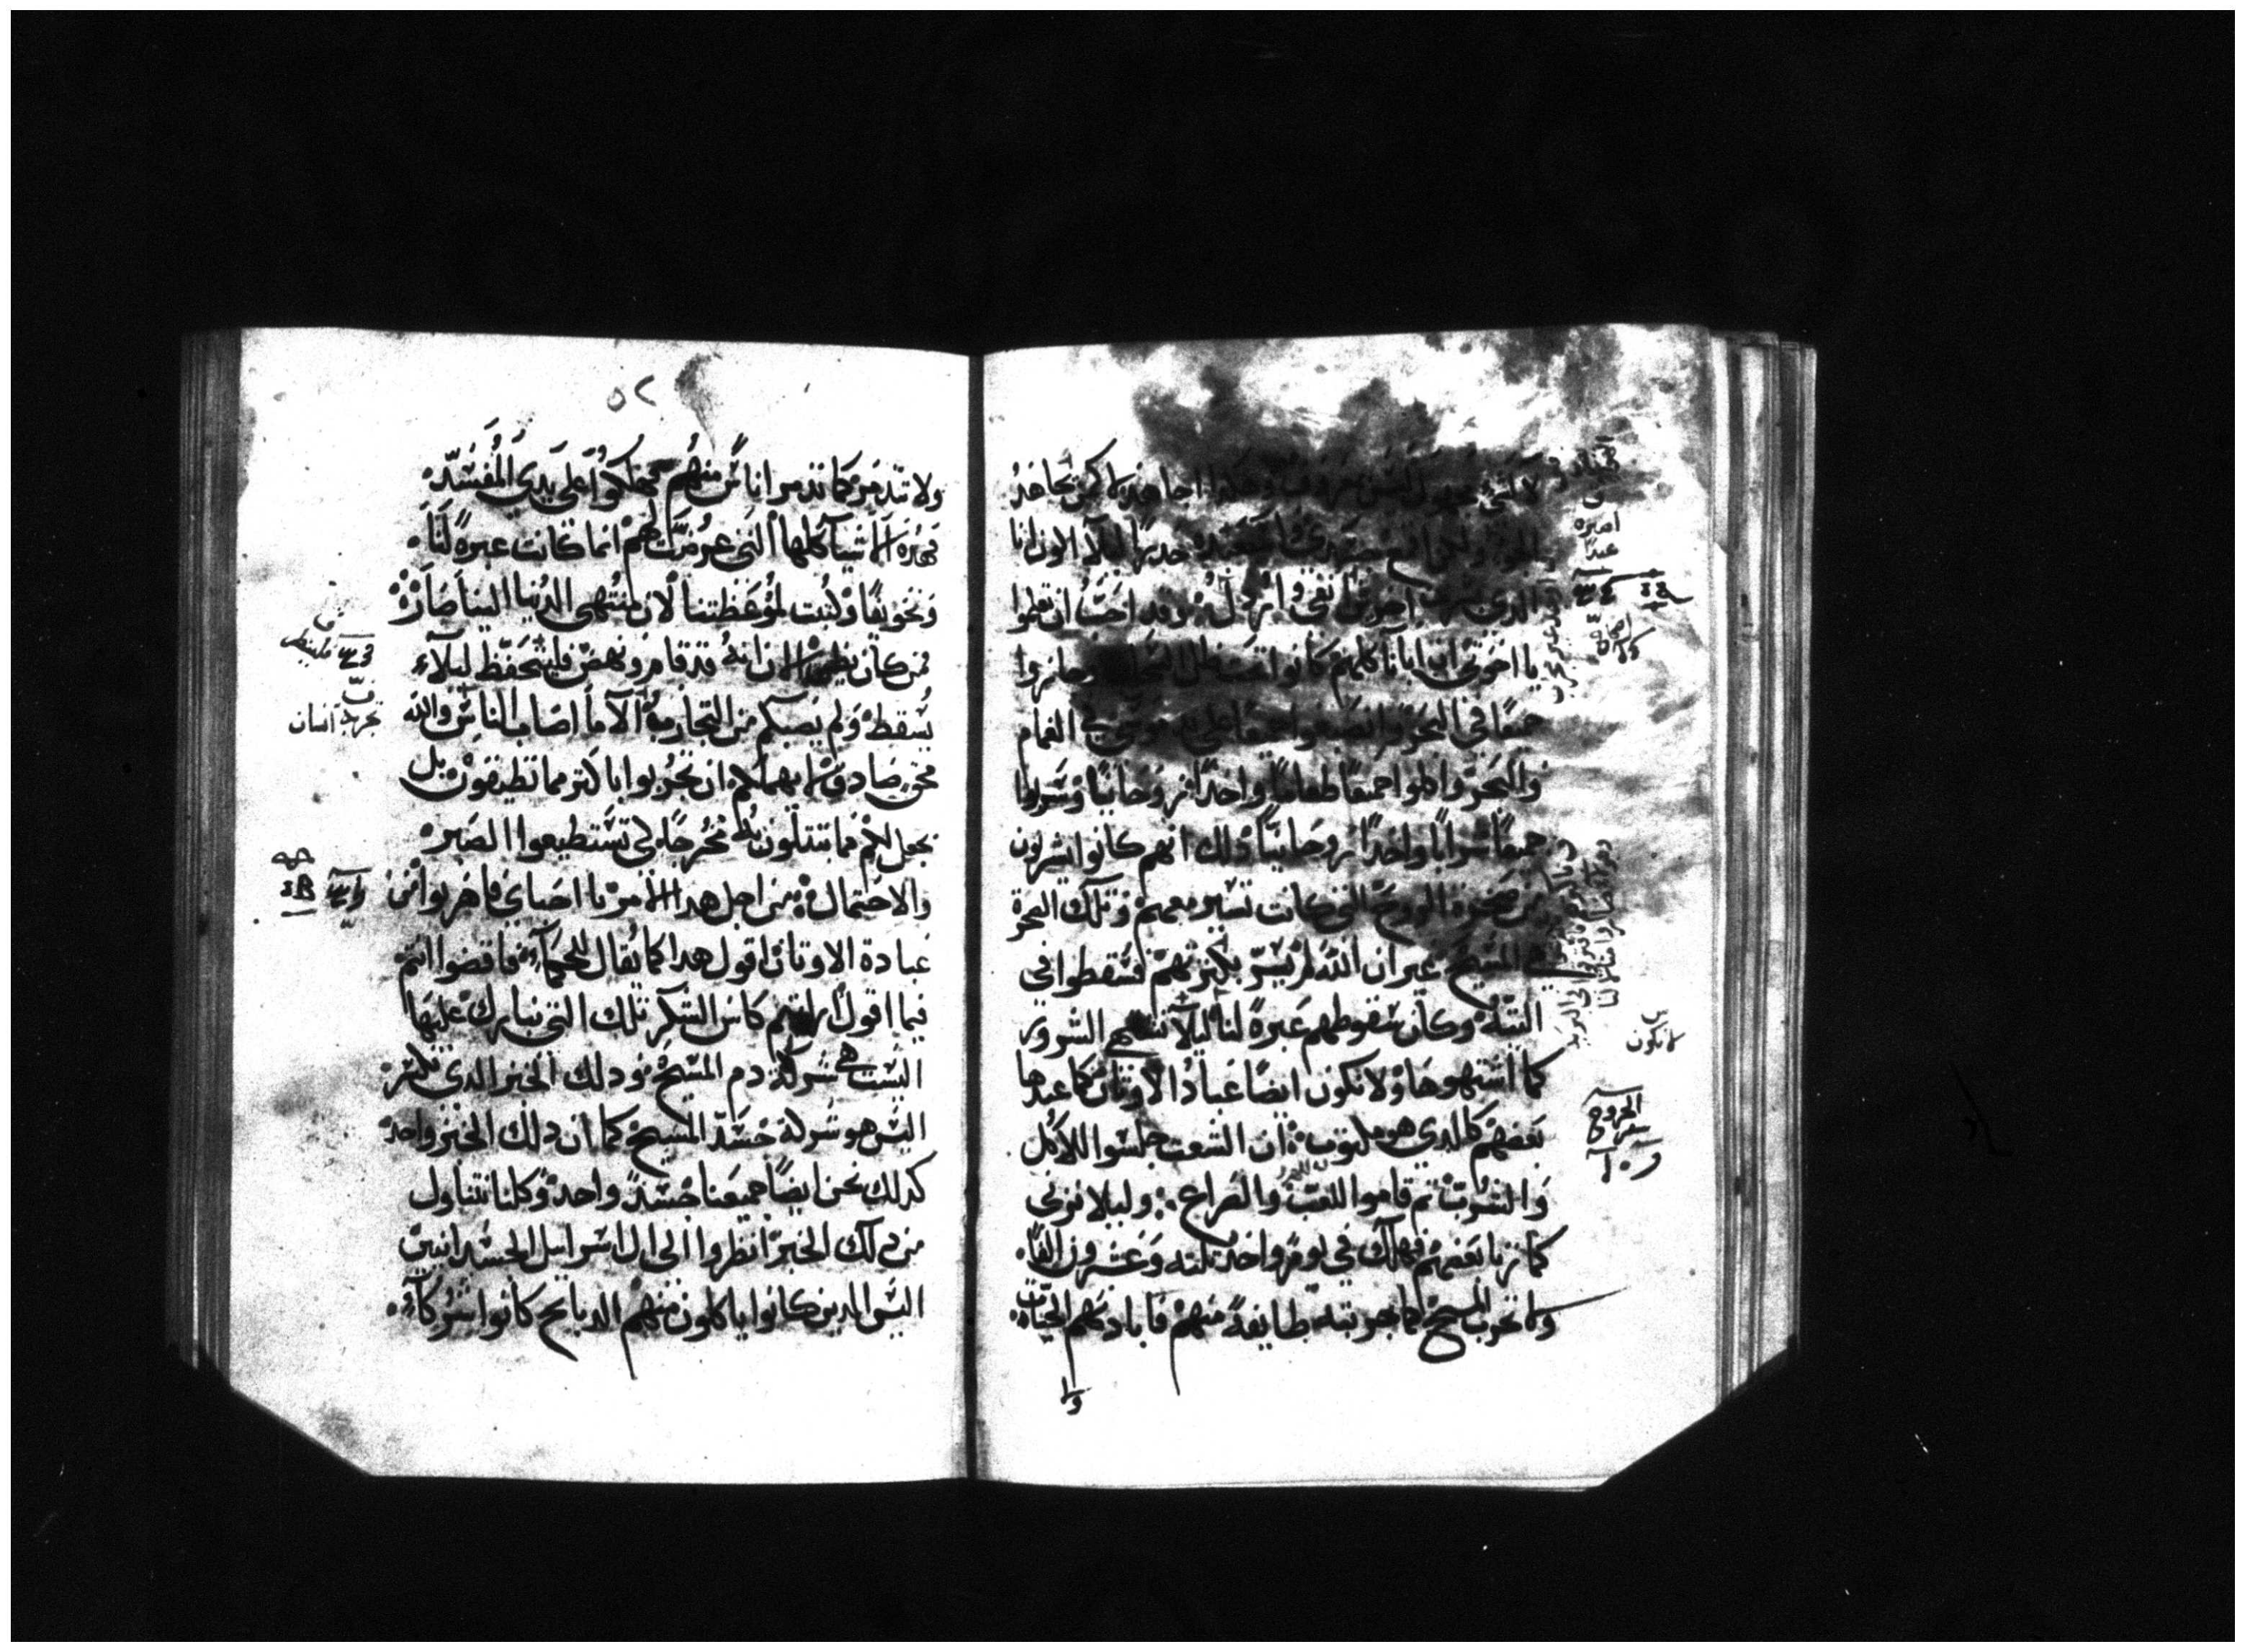 لا لشي مجهول ليس بمعروف وهكذا اجاهد لا كمن يجاهد
الجو ولكن اقمع جسدي واستعبده حدرًا ليلا اكون انا
الذي بشرت اخرين انفي وارذل وقد احب ان تعلموا
يا اخوتي ان ابانا كلهم كانوا تحت ظل السحاب وجازوا
جميعًا في البحر وانصبغوا جميعًا على يد موسى في الغمام
والبحر واكلوا جميعًا طعامًا واحدًا روحانيًا وشربوا
جميعًا شرابًا واحدًا روحانيًا ذلك انهم كانوا يشربون
من صخرة الروح التي كانت تسير معهم وتلك الصخرة
هي المسيح غير ان الله لم يسر بكثرتهم فسقطوا في
التيه وكان سقوطهم عبرةً لنا ليلا نشتهي الشرور
كما اشتهوها ولا نكون ايضًا عبادًا الاوثان كما عبدها
بعضهم كالذي هو مكتوب ان الشعب جلسوا للاكل
والشرب ثم قاموا للعب والصراع وليلا نزني
كما زنا بعضهم فهلك في يوم واحد ثلثه وعشرون الفًا
ولا نجرب المسيح كما جربته طايفة منهم فابادتهم الحيّات
ولا
لا نكون
الخروج
سفر
٥٢
ولا تتذمر كما تذمر اناس منهم فهلكوا على يدي المفسد
فهذه الاشيآ كلها التي عرضت لهم انما كانت عبرةً لنا
وتخويفًا وكتبت لموعظتنا لان منتهى الدنيا الينا صار
فمن كان يظن الان انه قد قام ونهض فليتحفظ ليلا
يسقط ولم يصبكم من التجارب الا ما اصاب الناس والله
محق صادق لا يهملكم ان تجربوا باكثر مما تطيقون بل
يجعل لكم مما تبتلون به مخرجًا لكي تستطيعوا الصبر
والاحتمال من اجل هذا الامر يا احباي فاهربوا من
عبادة الاوثان اقول هذا كما يقال للحكمآ فاقضوا انتم
فيما اقول لكم كاس الشكر تلك التي نبارك عليها
اليست هي شركة دم المسيح وذلك الخبز الذي نكسر
اليس هو شركة جسد المسيح كما ان ذلك الخبز واحد
كذلك نحن ايضًا جميعنا جسد واحد وكلنا نتناول
من ذلك الخبز انظروا الى ال اسرايل الجسدانيين
اليس الذين كانوا ياكلون منهم الدبايح كانوا شركآ
فلينظر
تجربة انسان